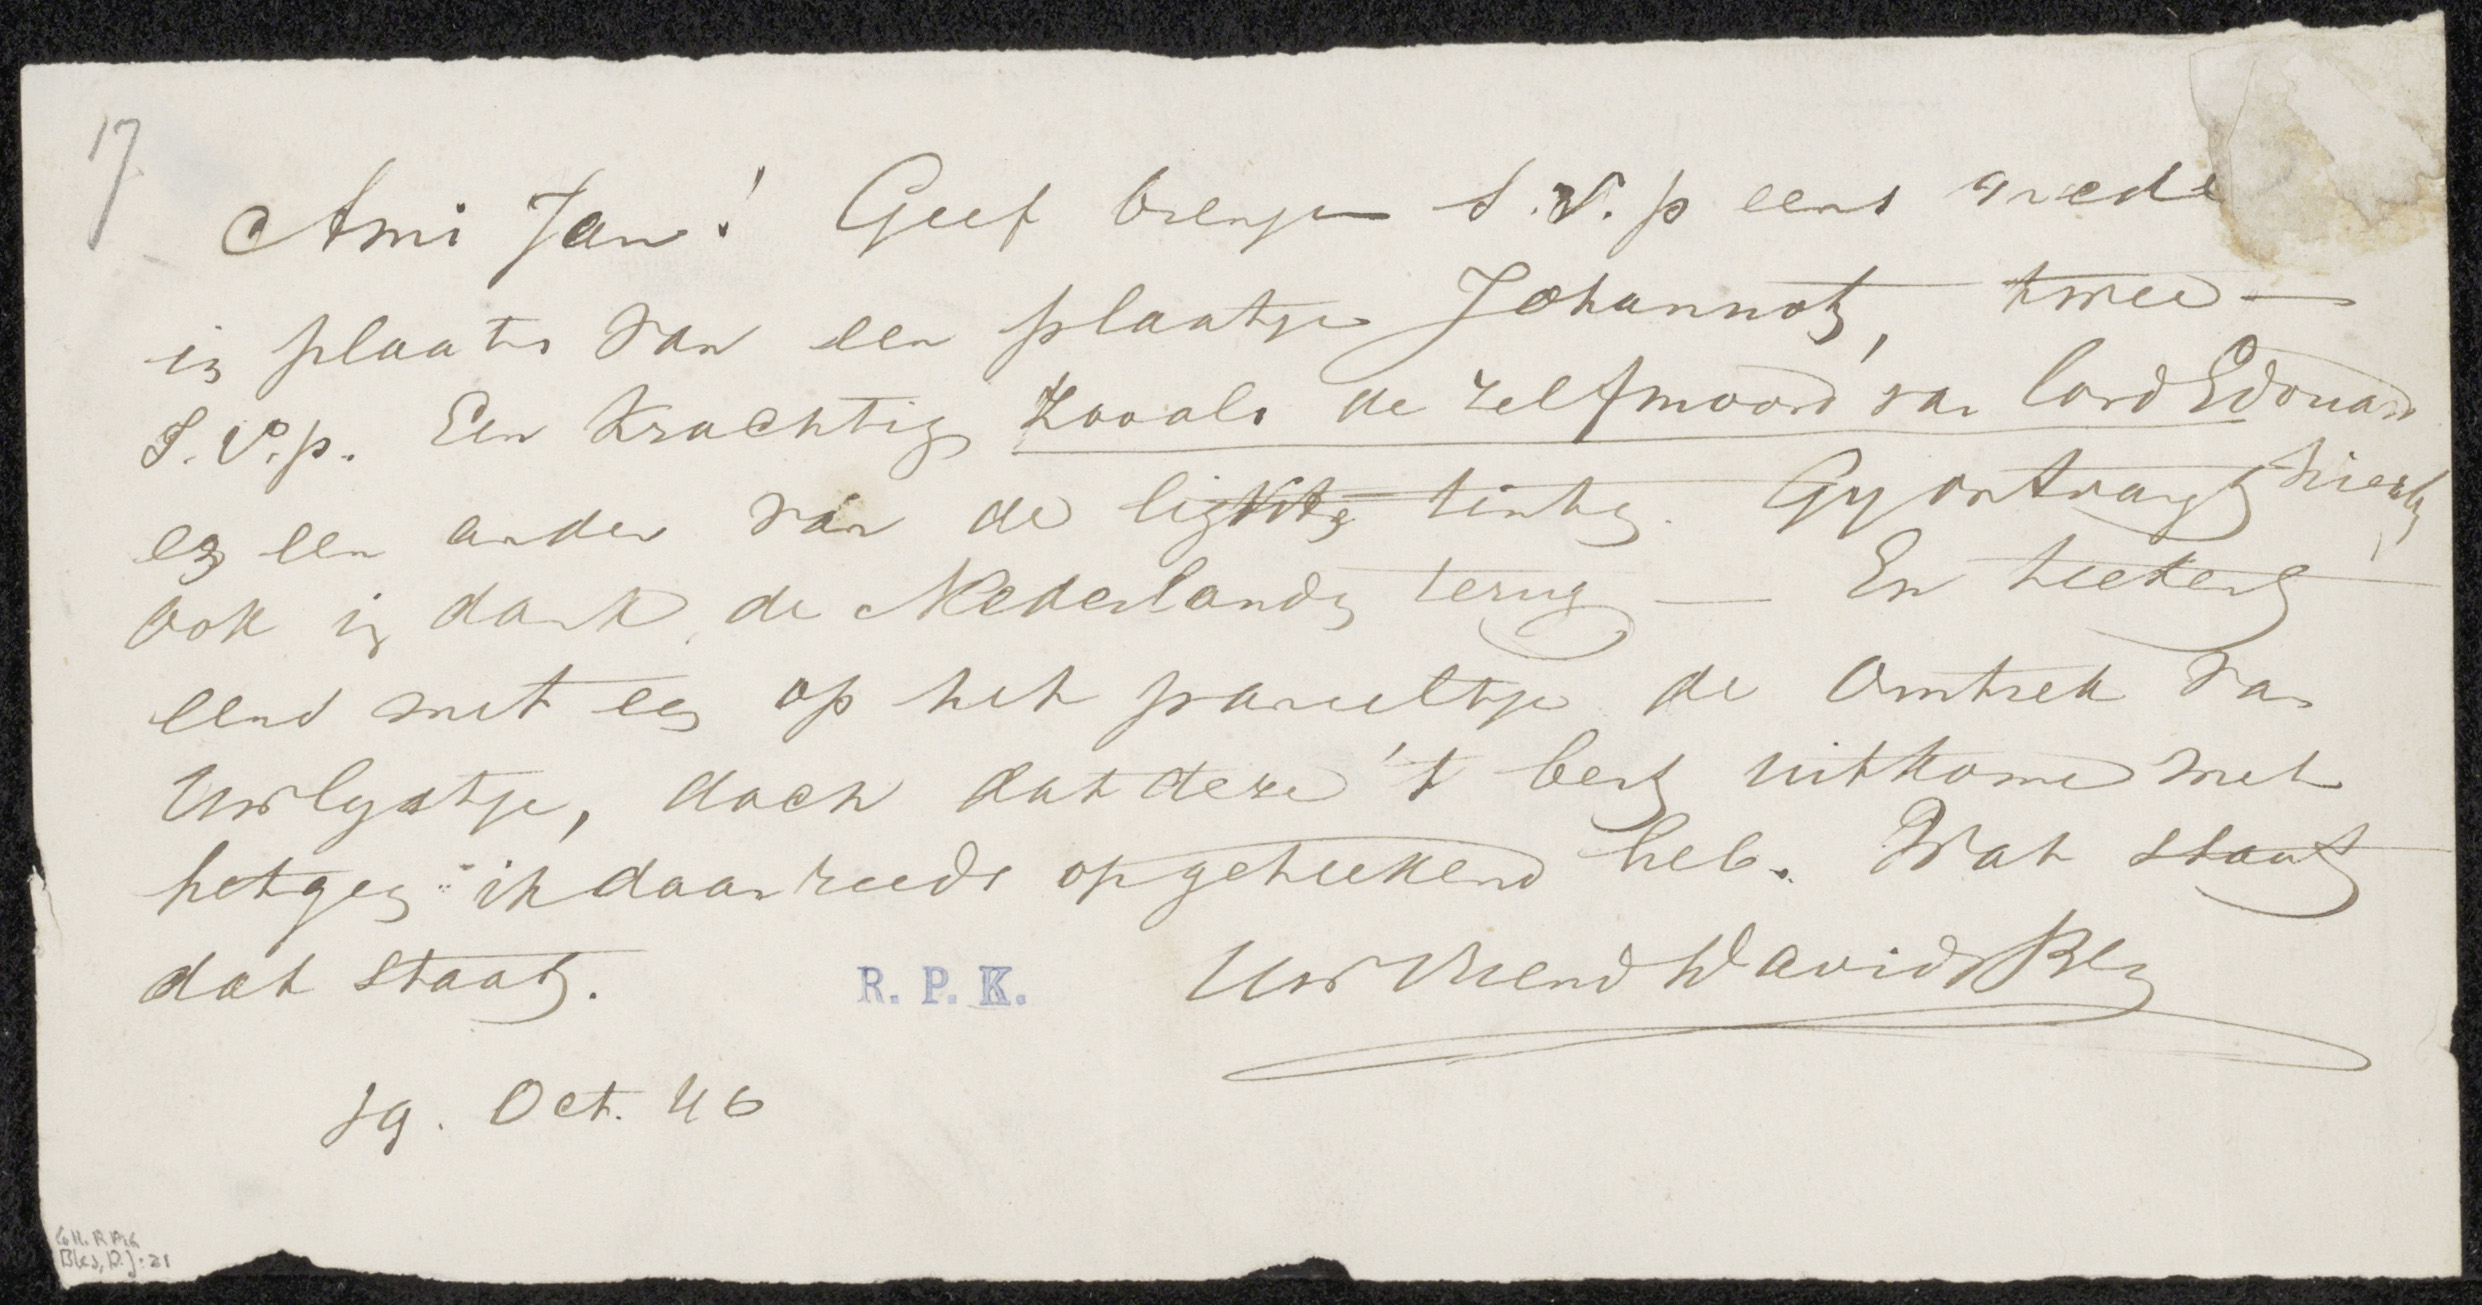 17
Ami Jan! Geef brenger S.V.p eens mede
in plaats van een plaatje Johannot, twee —
S.V.p. Een krachtig zooals de zelfmoord van Lord Edouard
en een ander van de ligte tinten. Gy ontvangt hierby
ook in dank de Nederlanden terug — En teekent
eens met een op het paneeltje de omtrek van
Uw lystje, doch dat deze 't best uitkome met
hetgeen ik daar reeds opgeteekend heb. Wat staat
dat staat.
R. P. K.
Uw Vriend David Bles
19. Oct. 46
Bles, D.J. 21